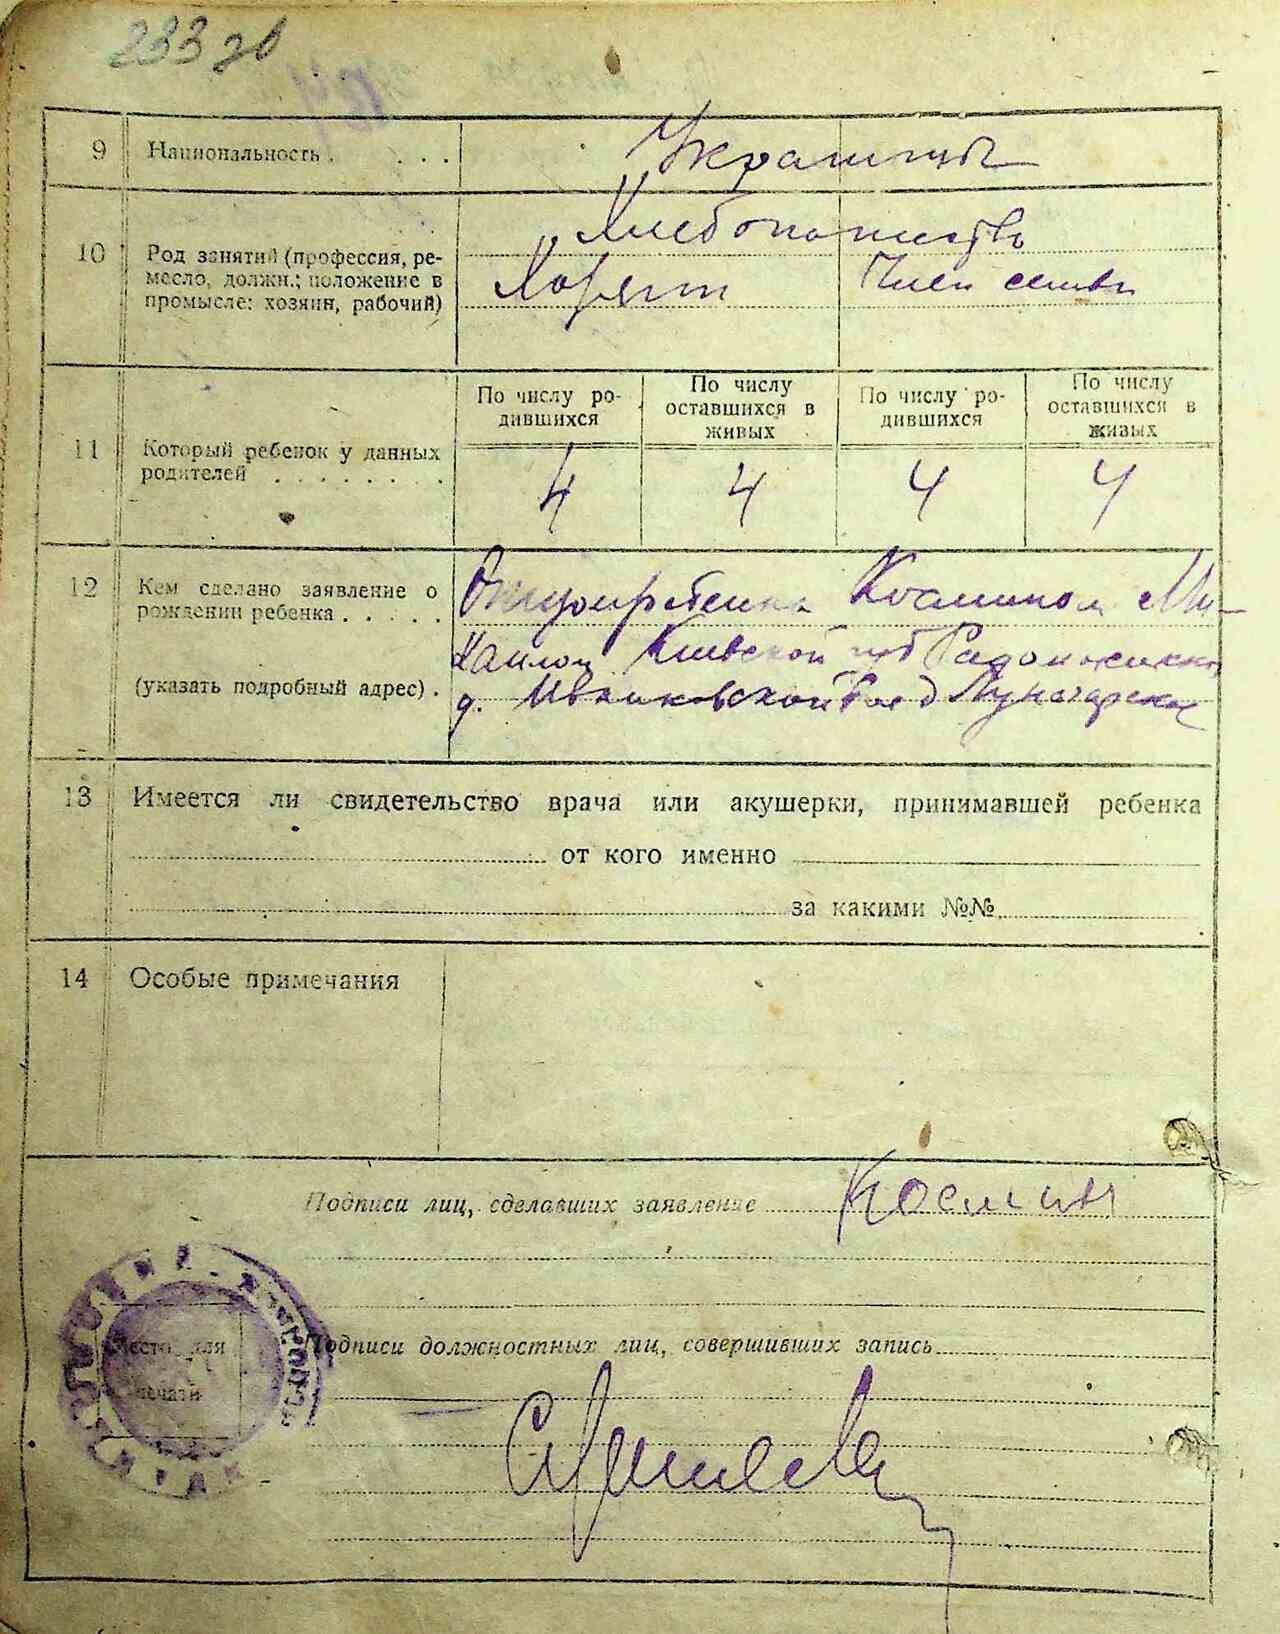 233 об
9 Национальность . . . . Украинцы
10 Род занятий (профессия, ре-
месло, должн.; положение в
промысле: хозяин, рабочий)
Хлебопашество
Хозяин Член семьи
11 Который ребенок у данных
родителей . . . . . . . .
По числу ро-
дившихся
По числу
оставшихся в
живых
По числу ро-
дившихся
По числу
оставшихся в
живых
4 4 4 4
12 Кем сделано заявление о
рождении ребенка . . . . .
(указать подробный адрес) .
Отцом ребенка Косминым Ми-
хаилом губ
д.
13 Имеется ли свидетельство врача или акушерки, принимавшей ребенка
от кого именно
за какими №№
14 Особые примечания
Подписи лиц, сделавших заявление Космин
Место для
печати
Подписи должностных лиц, совершивших запись